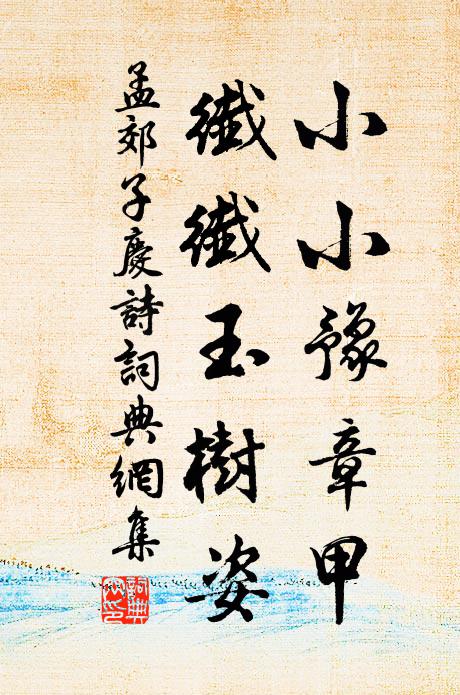 小小豫章甲
纖纖玉樹姿
孟郊子慶詩詞典網集